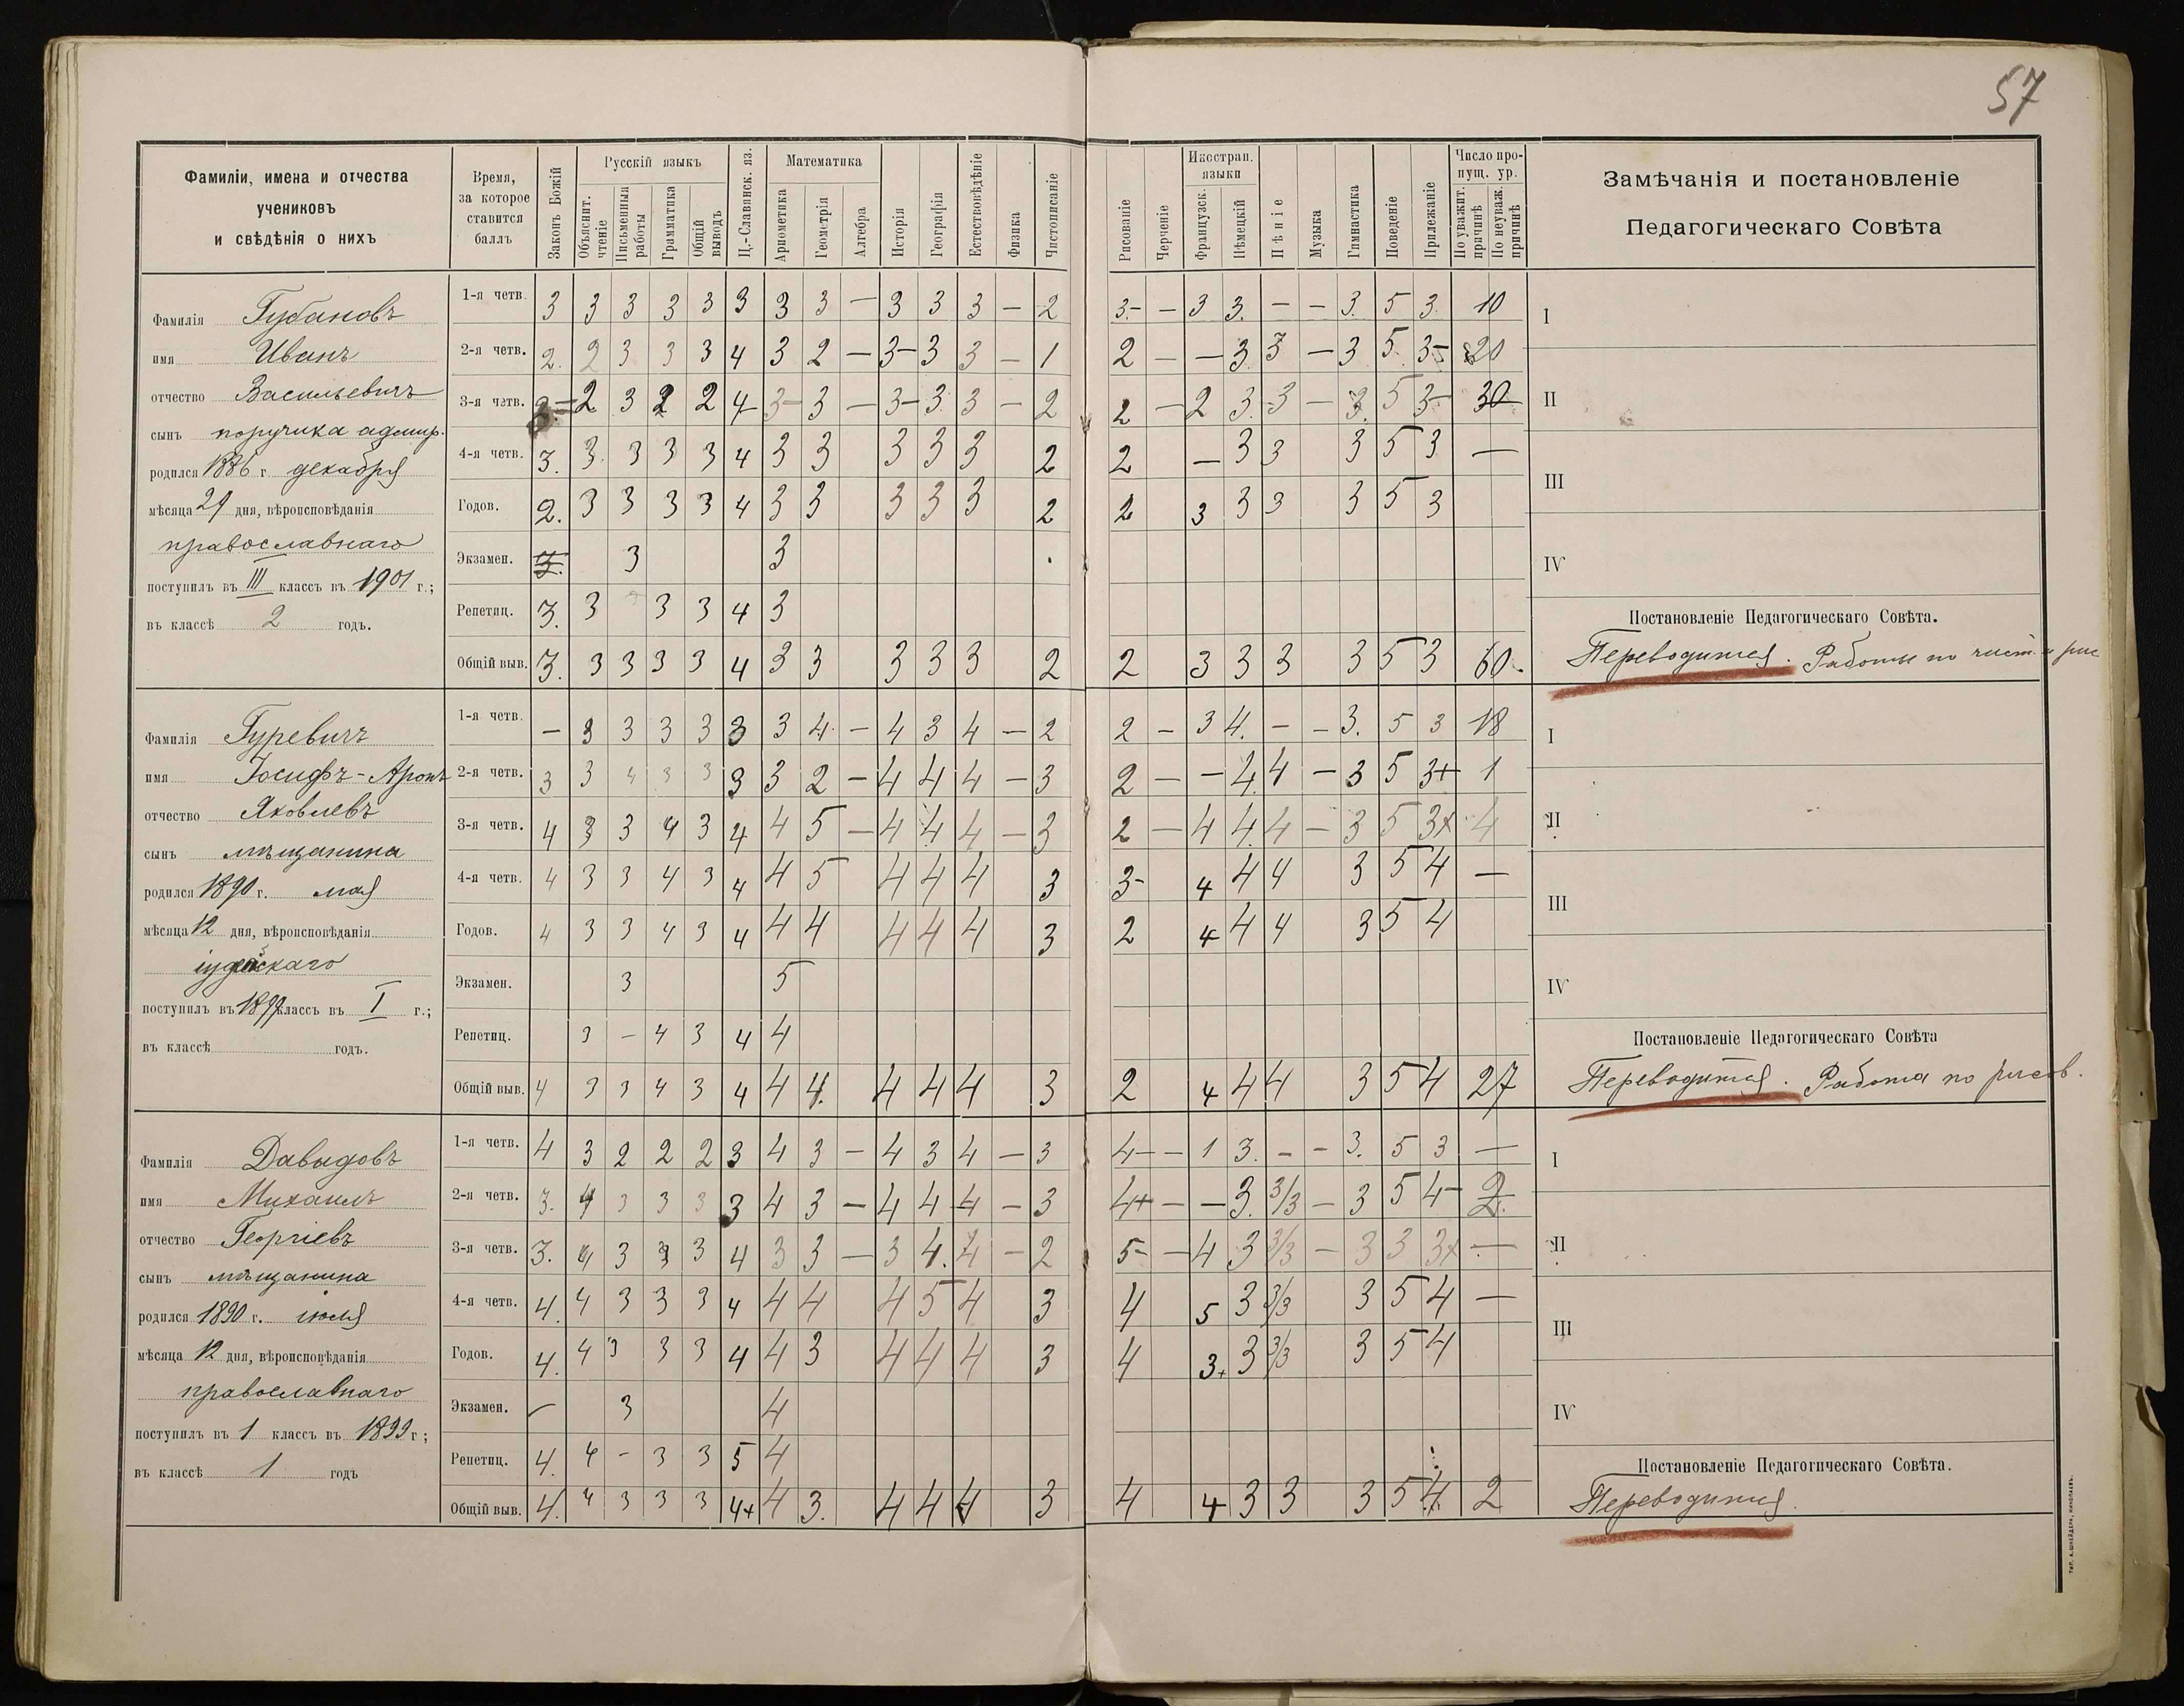 57
Фамиліи, имена и отчества
учениковъ
и свѣдѣнія о нихъ
Время,
за которое
ставится
баллъ
Законъ Божій
Русскій языкъ
Объяснит. чтеніе
Письменныя работы
Грамматика
Общій выводъ
Ц.-Славянск. яз.
Математика
Ариѳметика
Геометрія
Алгебра
Исторія
Географія
Естествовѣдѣніе
Физика
Чистописаніе
Рисованіе
Черченіе
Иностран. языки
Французск.
Нѣмецкій
Пѣніе
Музыка
Гимнастика
Поведеніе
Прилежаніе
Число пропущ. ур.
По уважит. причинѣ
По неуваж. причинѣ
Замѣчанія и постановленіе
Педагогическаго Совѣта
Фамилія Губановъ
имя Иванъ
отчество Васильевичъ
сынъ поручика адмир.
родился 1886 г. декабря
мѣсяца 29 дня, вѣроисповѣданія
православнаго
поступилъ въ III классъ въ 1901 г.;
въ классѣ 2 годъ.
1-я четв. 3 3 3 3 3 3 3 3 — 3 3 3 — 2 3- — 3 3. — — 3. 5 3 10
2-я четв. 2. 2 3 3 3 4 3 2 — 3- 3 3 — 1 2 — — 3. 3 — 3 5 3- 20
3-я четв. 2 3 2 2 4 3- 3 — 3- 3 3 — 2 2 — 2 3. 3 — 3. 5 3- 30
4-я четв. 3. 3 3 3 3 4 3 3 3 3 3 2 2 — 3 3 3 5 3 —
Годов. 2. 3 3 3 3 4 3 3 3 3 3 2 2 3 3 3 3 5 3
Экзамен. 3 3
Репетиц. 3. 3 3 3 4 3
Общій выв. 3. 3 3 3 3 4 3 3 3 3 3 2 2 3 3 3 3 5 3 60.
I
II
III
IV
Постановленіе Педагогическаго Совѣта.
Переводится. Работы по чист. и рис
Фамилія Гуревичъ
имя Іосифъ-Аронъ
отчество Яковлевъ
сынъ мѣщанина
родился 1890 г. мая
мѣсяца 12 дня, вѣроисповѣданія
іудейскаго
поступилъ въ 1899 классъ въ I г.;
въ классѣ годъ.
1-я четв. — 3 3 3 3 3 3 4 — 4 3 4 — 2 2 — 3 4. — — 3. 5 3 18
2-я четв. 3 3 4 3 3 3 3 2 — 4 4 4 — 3 2 — — 4. 4 — 3 5 3+ 1
3-я четв. 4 3 3 4 3 4 4 5 — 4 4 4 — 3 2 — 4 4. 4 — 3 5 3+ 4
4-я четв. 4 3 3 4 3 4 4 5 4 4 4 3 3- 4 4 4 3 5 4 —
Годов. 4 3 3 4 3 4 4 4 4 4 4 3 2 4 4 4 3 5 4
Экзамен. 3 5
Репетиц. 3 — 4 3 4 4
Общій выв. 4 3 3 4 3 4 4 4. 4 4 4 3 2 4 4 4 3 5 4 27
I
II
III
IV
Постановленіе Педагогическаго Совѣта
Переводится. Работа по рисов.
Фамилія Давыдовъ
имя Михаилъ
отчество Георгіевъ
сынъ мѣщанина
родился 1890 г. іюля
мѣсяца 12 дня, вѣроисповѣданія
православнаго
поступилъ въ 1 классъ въ 1899 г;
въ классѣ 1 годъ
1-я четв. 4 3 2 2 2 3 4 3 — 4 3 4 — 3 4- — 1 3. — — 3. 5 3 —
2-я четв. 3. 4 3 3 3 3 4 3 — 4 4 4 — 3 4+ — — 3. 3/3 — 3 5 4- 2.
3-я четв. 3. 4 3 3 3 4 3 3 — 3 4. 4 — 2 5- — 4 3 3/3 — 3 3 3+ —
4-я четв. 4. 4 3 3 3 4 4 4 4 5 4 3 4 5 3 3/3 3 5 4 —
Годов. 4. 4 3 3 3 4 4 3 4 4 4 3 4 3+ 3 3/3 3 5 4
Экзамен. — 3 4
Репетиц. 4. 4 — 3 3 5 4
Общій выв. 4. 4 3 3 3 4+ 4 3. 4 4 4 3 4 4 3 3 3 5 4 2
I
II
III
IV
Постановленіе Педагогическаго Совѣта.
Переводится.
Тип. А. Шнейдера, Николаевъ.